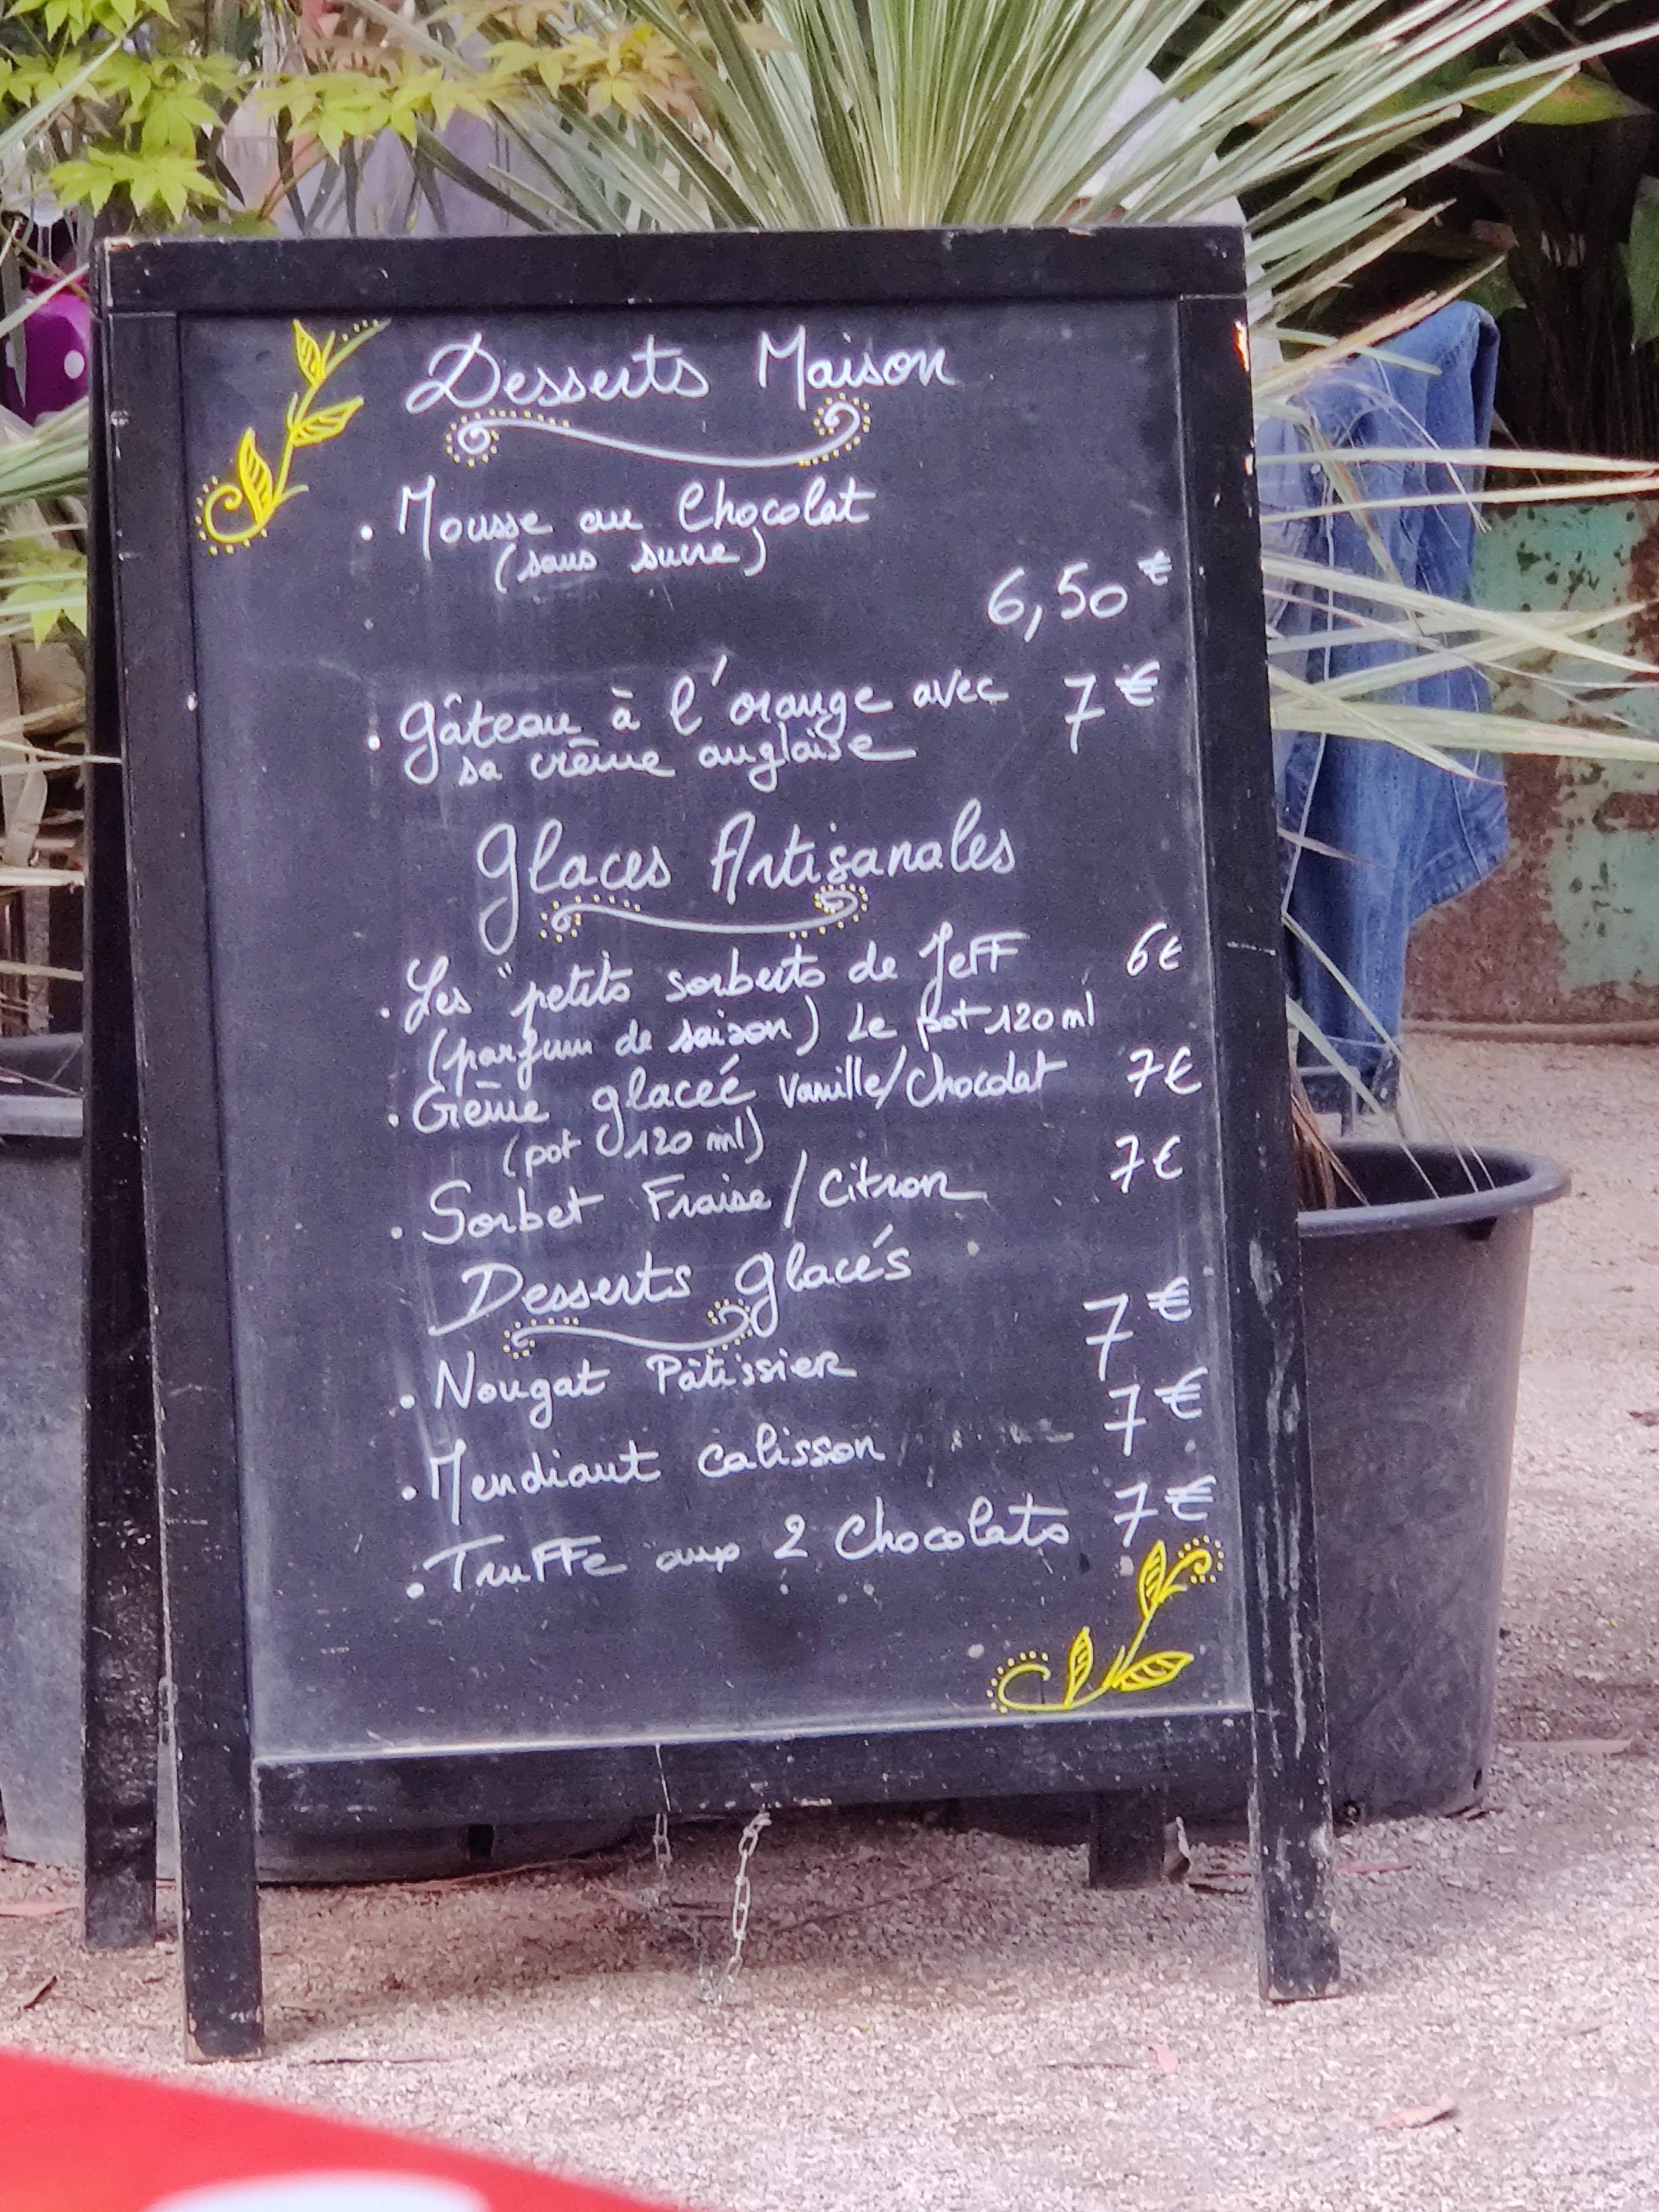 Desserts Maison
• Mousse au Chocolat
(sans sucre)
6,50€
• Gâteau à l'orange avec 7€
sa crème anglaise
Glaces Artisanales
• Les "petits sorbets de Jeff 6€
(parfum de saison) Le pot 120ml
• Crème glaceé Vanille/Chocolat 7€
(pot 120 ml)
• Sorbet Fraise/Citron 7€
Desserts Glacés
• Nougat Pâtissier 7€
• Mendiant calisson 7€
• Truffe aux 2 Chocolats 7€